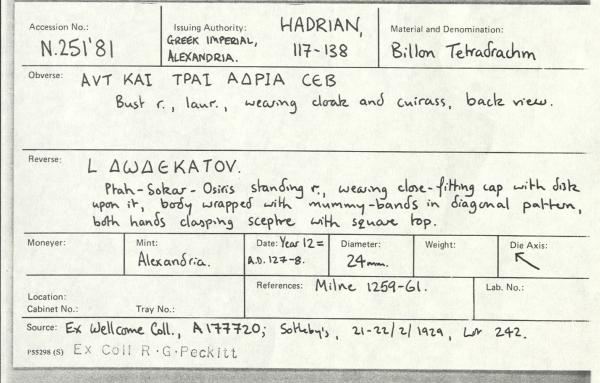 Accession No.: N.251'81
Issuing Authority: HADRIAN,
GREEK IMPERIAL, 117-138
ALEXANDRIA.
Material and Denomination:
Billon Tetradrachm
Obverse: ΑVΤ ΚΑΙ ΤΡΑΙ ΑΔΡΙΑ CЄΒ
Bust r., laur., wearing cloak and cuirass, back view.
Reverse: L ΔωΔЄΚΑΤΟV.
Ptah-Sokar-Osiris standing r., wearing close-fitting cap with disk
upon it, body wrapped with mummy-bands in diagonal pattern,
both hands clasping sceptre with square top.
Moneyer:
Mint:
Alexandria.
Date: Year 12 =
A.D. 127-8.
Diameter:
24mm.
Weight:
Die Axis:
↖
Location:
Cabinet No.: Tray No.:
References: Milne 1259-61.
Lab. No.:
Source: Ex Wellcome Coll., A177720; Sotheby's, 21-22/2/1929, Lot 242.
PS5298 (S) Ex Coll R.G.Peckitt